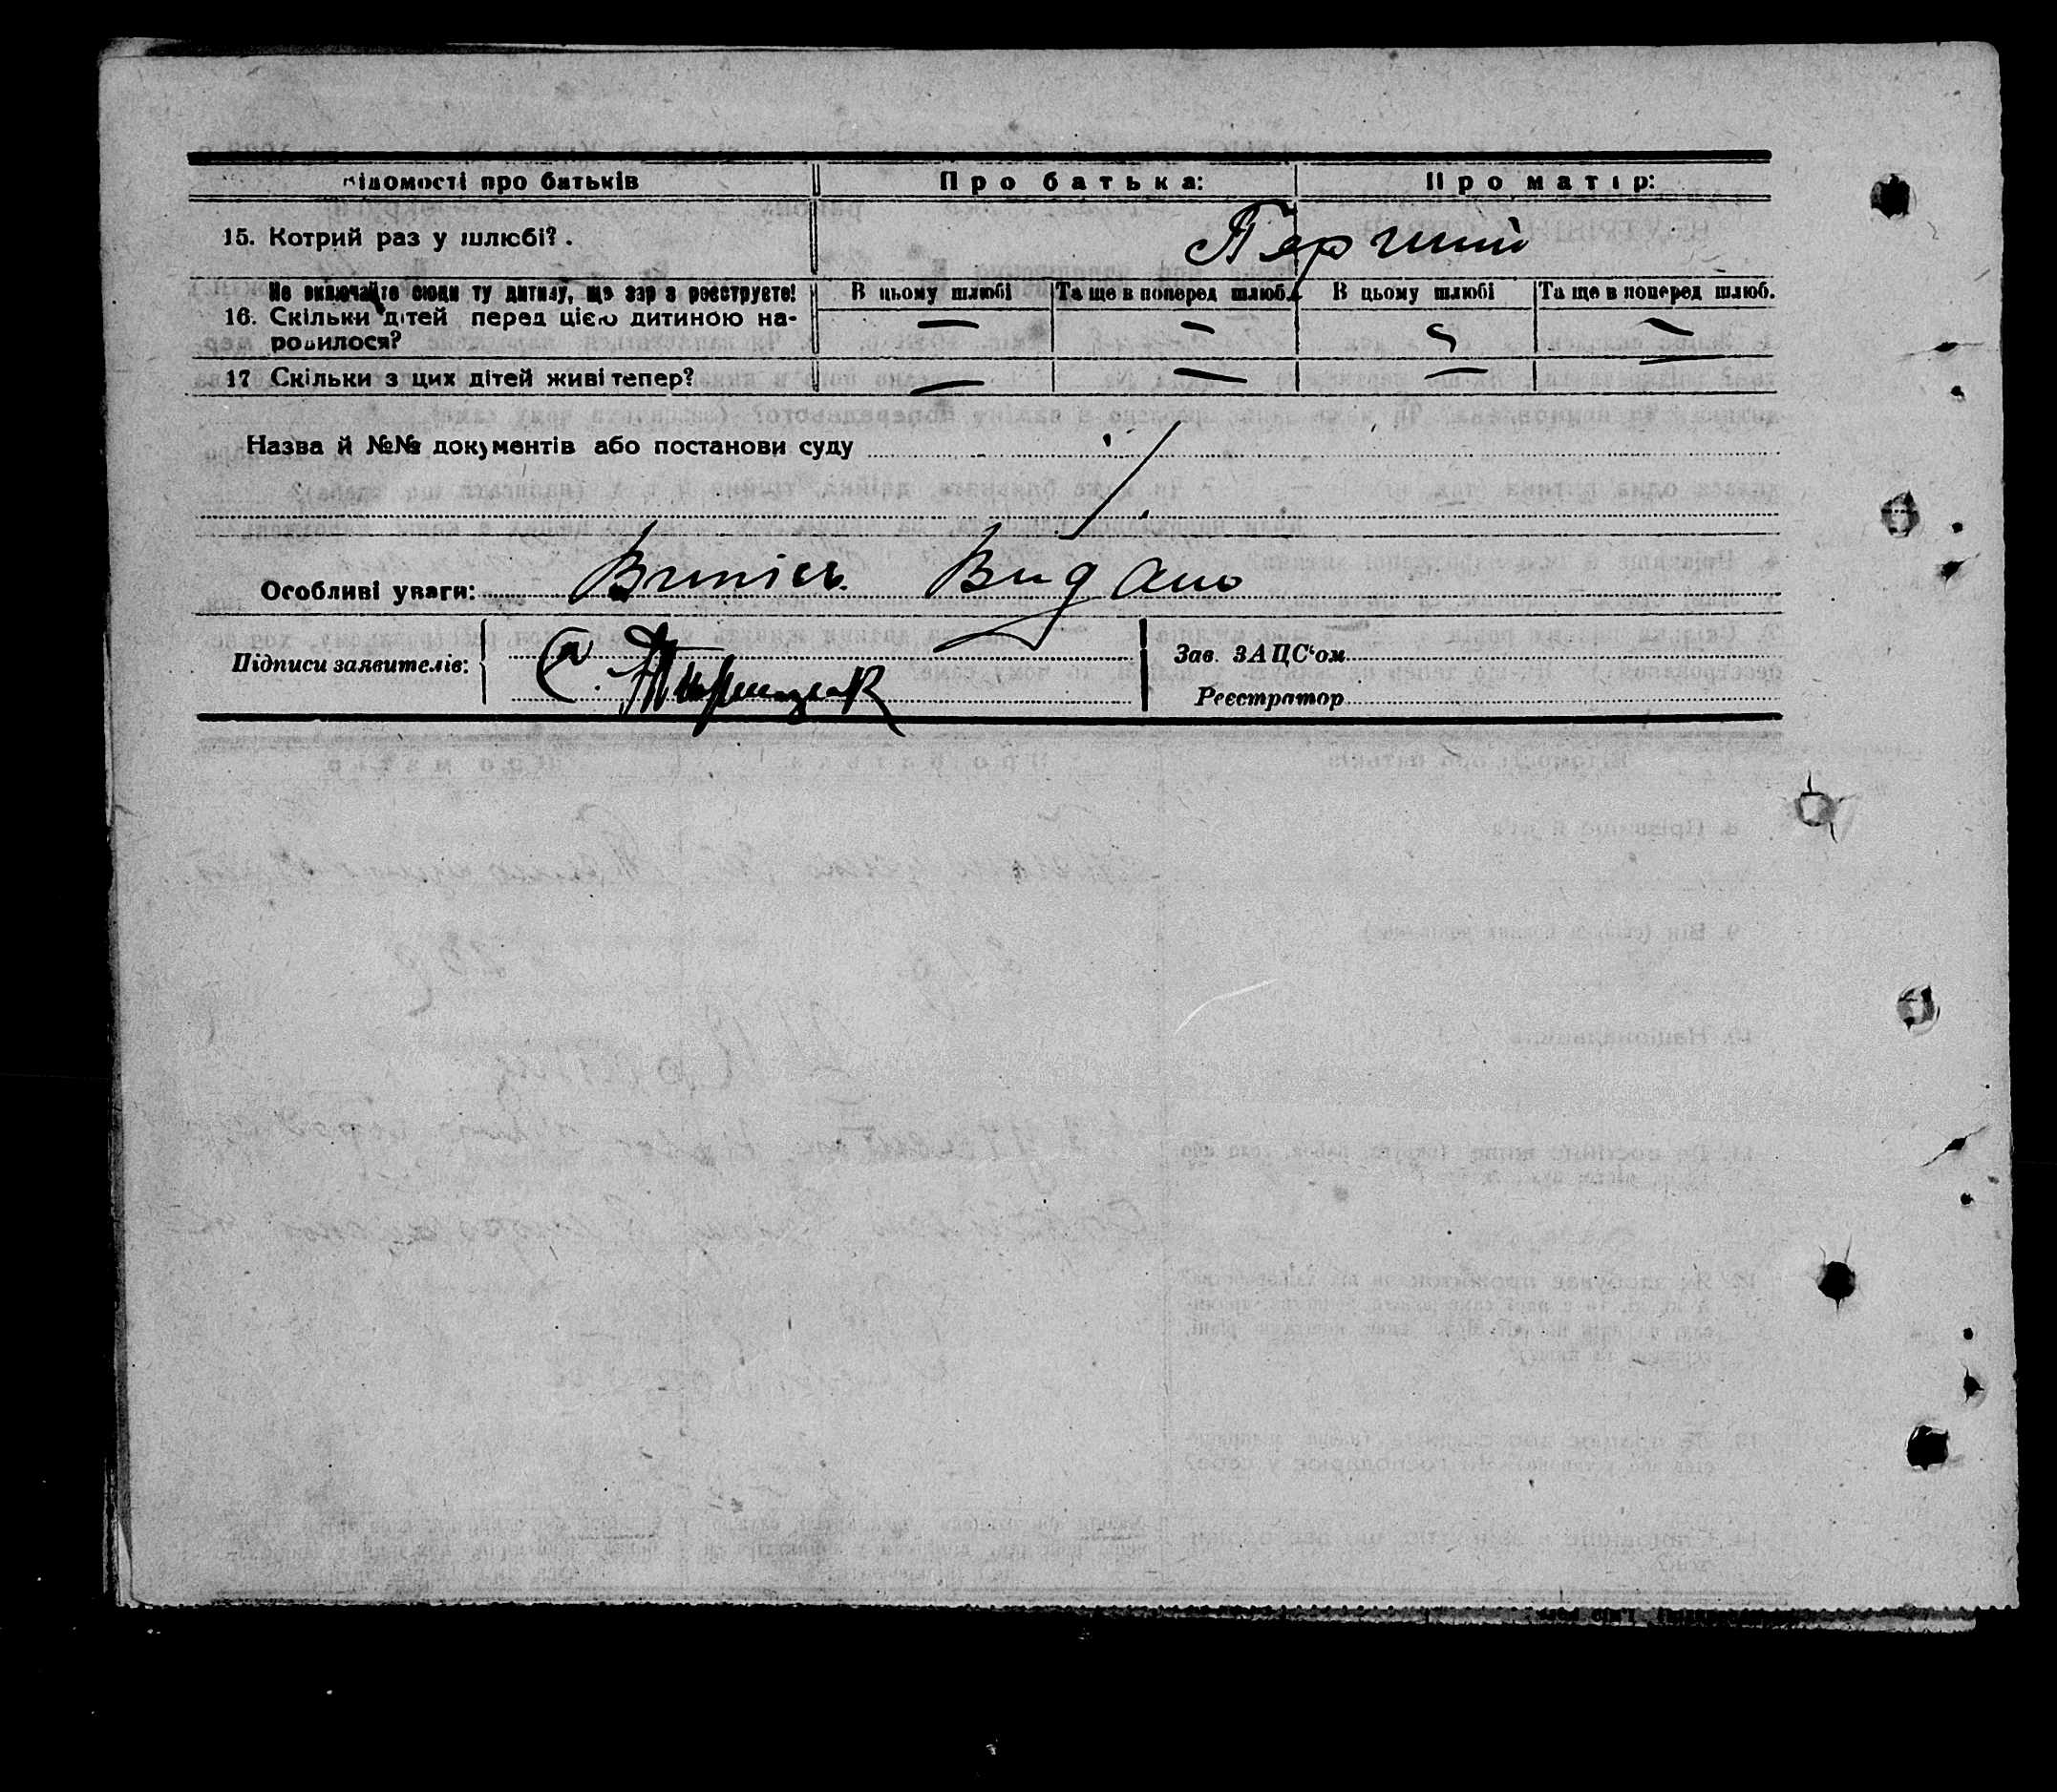 Відомості про батьків Про батька: Про матір:
15. Котрий раз у шлюбі?. Перший
Не включайте сюди ту дитину, що зар з реєструєте! В цьому шлюбі Та ще в поперед шлюб. В цьому шлюбі Та ще в поперед шлюб.
16. Скільки дітей перед цією дитиною на-
родилося? — — —
17 Скільки з цих дітей живі тепер? — — — —
Назва й №№ документів або постанови суду
Особливі уваги: Витяг Видано
Підписи заявителів: Зав. ЗАЦС'ом
Реєстратор